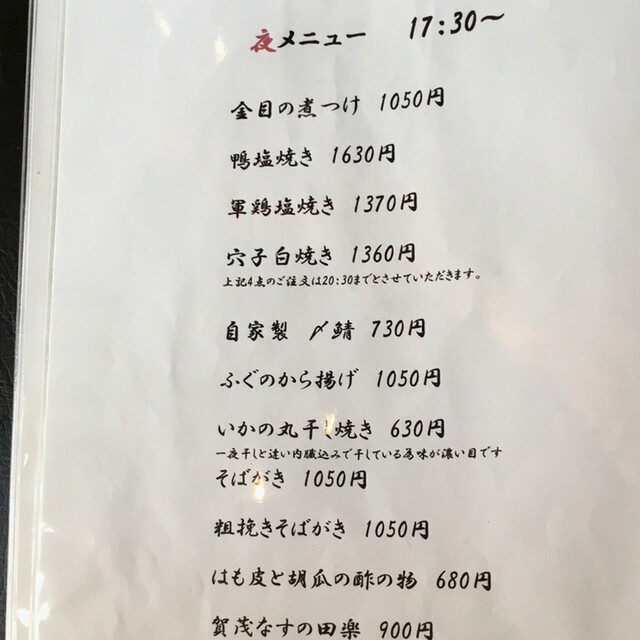 夜メニュー 17:30～
金目の煮つけ 1050円
鴨塩焼き 1630円
軍鶏塩焼き 1370円
穴子白焼き 1360円
上記4点のご注文は20:30までとさせていただきます。
自家製 〆鯖 730円
ふぐのから揚げ 1050円
いかの丸干し焼き 630円
一夜干しと違い内臓込みで干している為味が濃い目です
そばがき 1050円
粗挽きそばがき 1050円
はも皮と胡瓜の酢の物 680円
賀茂なすの田楽 900円